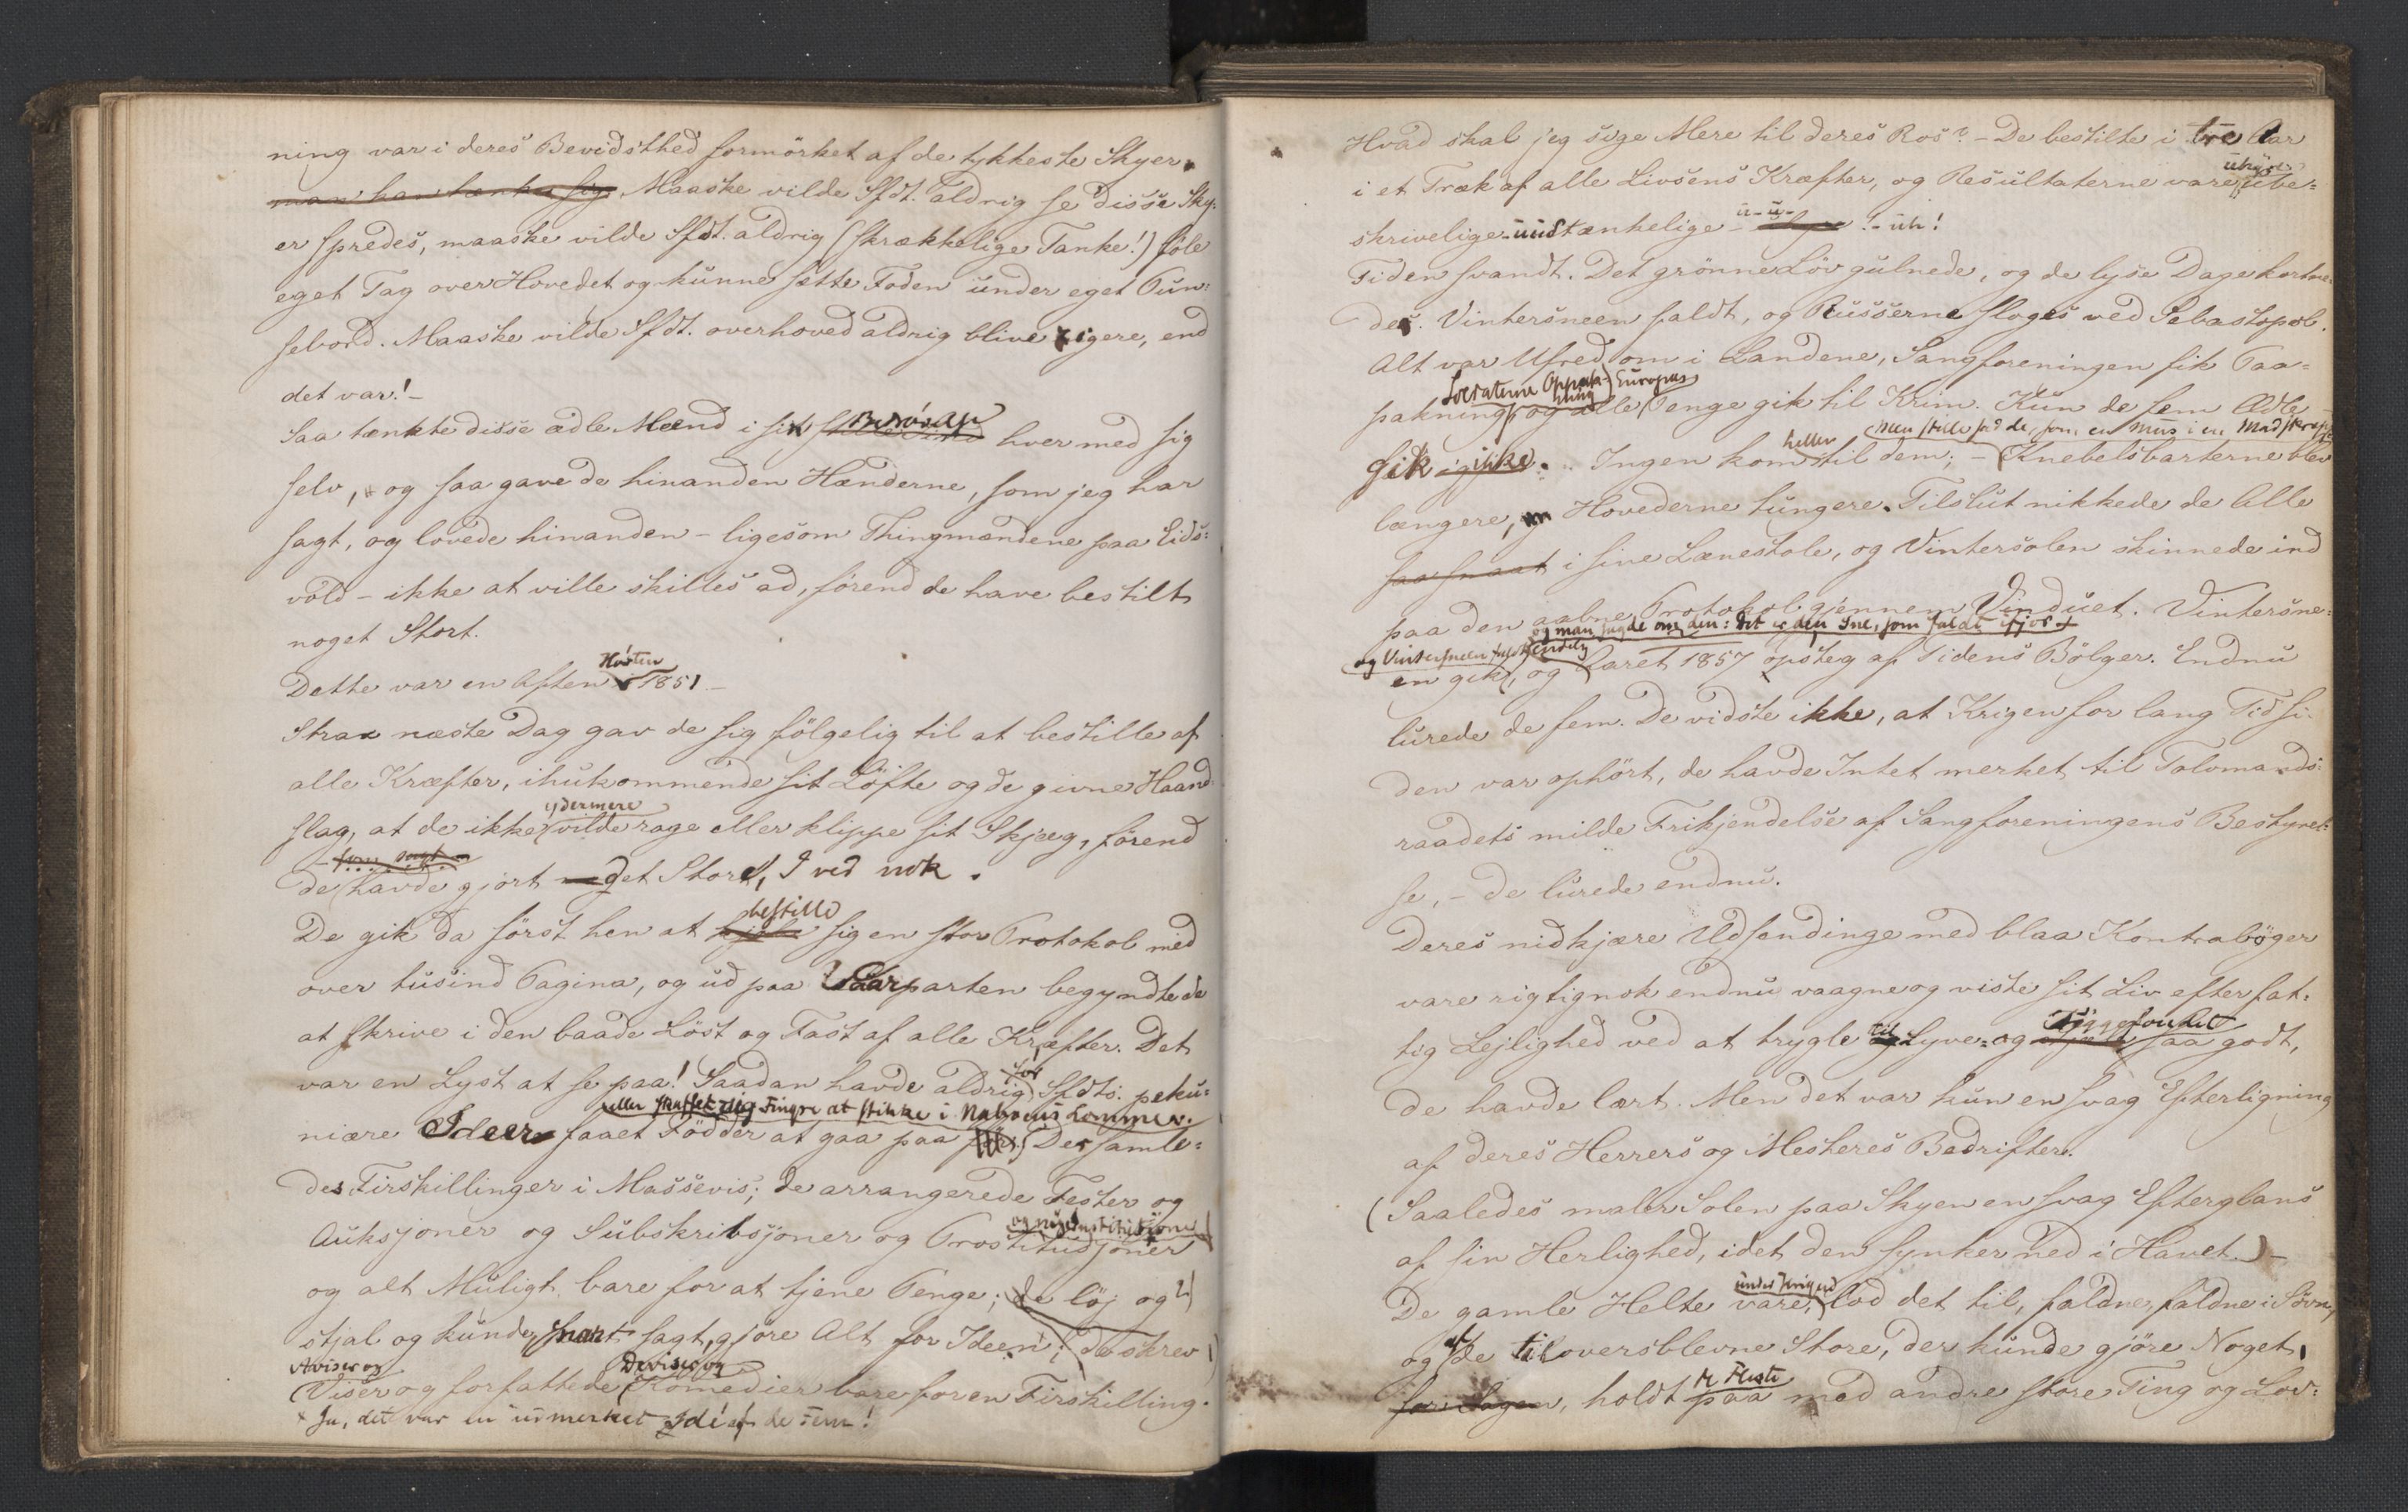 ning var i deres Bevidsthed formörket af de tykkeste Skyer.
man kan tænke sig. Maaske vilde Sfdt. aldrig se disse Sky-
er spredes, maaske vilde Sfdt. aldrig (skrækkelige Tanke!) föle
eget Tag over Hovedet og kunne sætte Foden under eget Pün-
sebord. Maaske vilde Sfdt. overhoved aldrig blive rigere, end
det var! -
Saa tænkte disse ædle Mænd i sit hver med sig
selv, og saa gave de hinanden Hænderne, som jeg har
sagt, og lovede hinanden - ligesom Thingmændene paa Eids-
vold - ikke at ville skilles ad, förend de have bestilt
noget Stort.
Hösten
Dette var en Aften 1851 -
Strax næste Dag gav de sig fölgelig til at bestille af
alle Kræfter, ihukommende sit Löfte og de givne Haand-
ydermere
slag, at de ikke vilde rage eller klippe sit Skjæg, förend
- som sagt -
de havde gjort noget Stort, I ved nok.
bestille
De gik da först hen at kjöbe sig en stor Protokol med
over tüsind Pagina, og üd paa Vaarparten begyndte de
at skrive i den baade Löst og Fast af alle Kræfter. Det
för
var en Lyst at se paa! Saadan havde aldrig Sfdts. pekü-
eller skaffet sig Fingre at stikke i Naboens Lommer.
niære Ideer faaet Födder at gaa paa för. Der samle-
des Firskillinger i Massevis; de arrangerede Fester og
og nye Institutsjoner
Auksjoner og Sübskribsjoner og Prostitüdsjoner
og alt Müligt bare for at tjene Penge; de löj og
stjal og künde, snart sagt, gjöre Alt for Ideen; de skrev
Aviser og Deviser og
Viser og forfattede Komedier bare for en Firskilling.
Ja, det var en udmerket Idé af de Fem!
Hvad skal jeg sige Mere til deres Ros? - De bestilte i tre Aar
uhyre
i et Træk af alle Livsens Kræfter, og Resültaterne vare, übe-
ü-ü-
skrivelige - üüdtænkelige - ! - üh!
Tiden svandt. Det grönne Löv gülnede, og de lyse Dage kortne-
des. Vintersneen faldt, og Rüsserne sloges ved Sebastopol.
Alt var Ufred om i Landene, Sangforeningen fik Paa-
Soldaterne Oppak- Europas
ning
pakning og alle Penge gik til Krim. Kün de fem Ædle
heller men stille sad de, som en Mus i en Madskrep-
gik ikke. Ingen kom til dem; - Knebelsbarterne blev
længere, Hovederne tüngere. Tilslüt nikkede de Alle
saa smaat i sine Lænestole, og Vintersolen skinnede ind
paa den aabne Protokol gjennem Vindüet. Vintersne-
og man sagde om den: det er den Sne, som faldt ifjor
og Vintersneen faldt endelig
en gik, og Aaret 1857 opsteg af Tidens Bölger. Endnü
lürede de fem. De vidste ikke, at Krigen for lang Tid si-
den var ophört, de havde Intet merket til Tolvmands-
raadets milde Frikjendelse af Sangforeningens Bestyrel-
se, - de lürede endnü.
Deres nidkjære Udsendinge med blaa Kontraböger
vare rigtignok endnü vaagne og viste sit Liv efter fat-
til Tiggefolket
tig Lejlighed ved at trygle og Lyve- og saa godt,
de havde lært. Men det var kün en svag Efterligning
af deres Herrers og Mesteres Bedrifter.
(Saaledes maler Solen paa Skyen en svag Efterglans
af sin Herlighed, idet den synker ned i Havet.) -
under Krigen
De gamle Helte vare, lod det til, faldne, faldne i Sövn,
af
og de tiloversblevne Store, der künde gjöre Noget
de Fleste
for Sagen, holdt paa med andre store Ting og Lov-